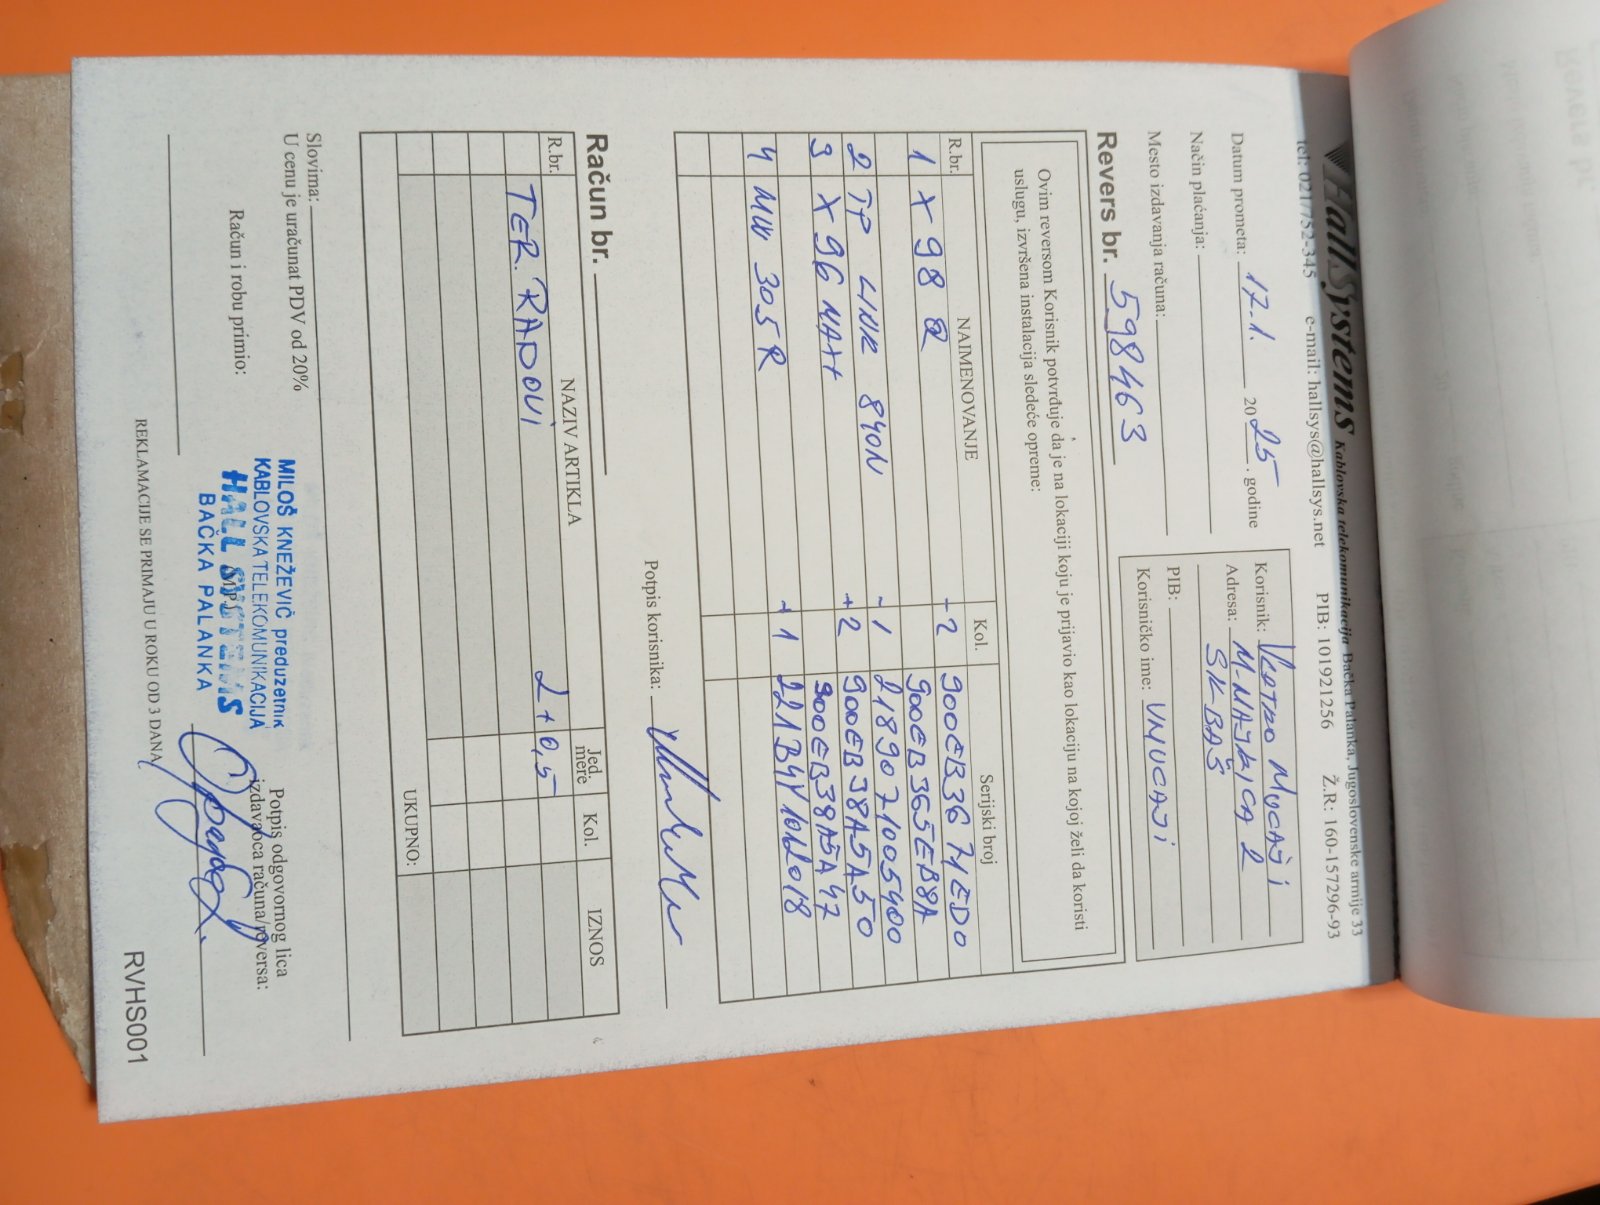 HallSystems Kablovska telekomunikacija Bačka Palanka, Jugoslovenske armije 33
tel: 021/752-345 e-mail: hallsys@hallsys.net PIB: 101921256 Ž.R: 160-157296-93
Datum prometa: 17.1. 2025. godine
Način plaćanja:
Mesto izdavanja računa:
Korisnik: MUCAJI
Adresa: M. MAJKICA 2
SK BAŠ
PIB:
Korisničko ime: VMUCAJI
Revers br. 598463
Ovim reversom Korisnik potvrđuje da je na lokaciji koju je prijavio kao lokaciju na kojoj želi da koristi
uslugu, izvršena instalacija sledeće opreme:
R.br. NAIMENOVANJE Kol. Serijski broj
1 X 98 Q -2 900EB3671ED0
900EB365EB8A
2 TP LINK 840N -1 2189071005400
3 X 96 MAX+ +2 900EB38A5A50
900EB38A5A47
4 MW 305R +1 221B4Y1012018
Potpis korisnika:
Račun br.
R.br. NAZIV ARTIKLA Jed. mere Kol. IZNOS
TER. RADOVI 2+0,5
UKUPNO:
Slovima:
U cenu je uračunat PDV od 20%
Račun i robu primio:
MILOŠ KNEŽEVIĆ preduzetnik
KABLOVSKA TELEKOMUNIKACIJA
HALL SYSTEMS
BAČKA PALANKA
(MP)
Potpis odgovornog lica
izdavaoca računa/reversa:
REKLAMACIJE SE PRIMAJU U ROKU OD 3 DANA
RVHS001